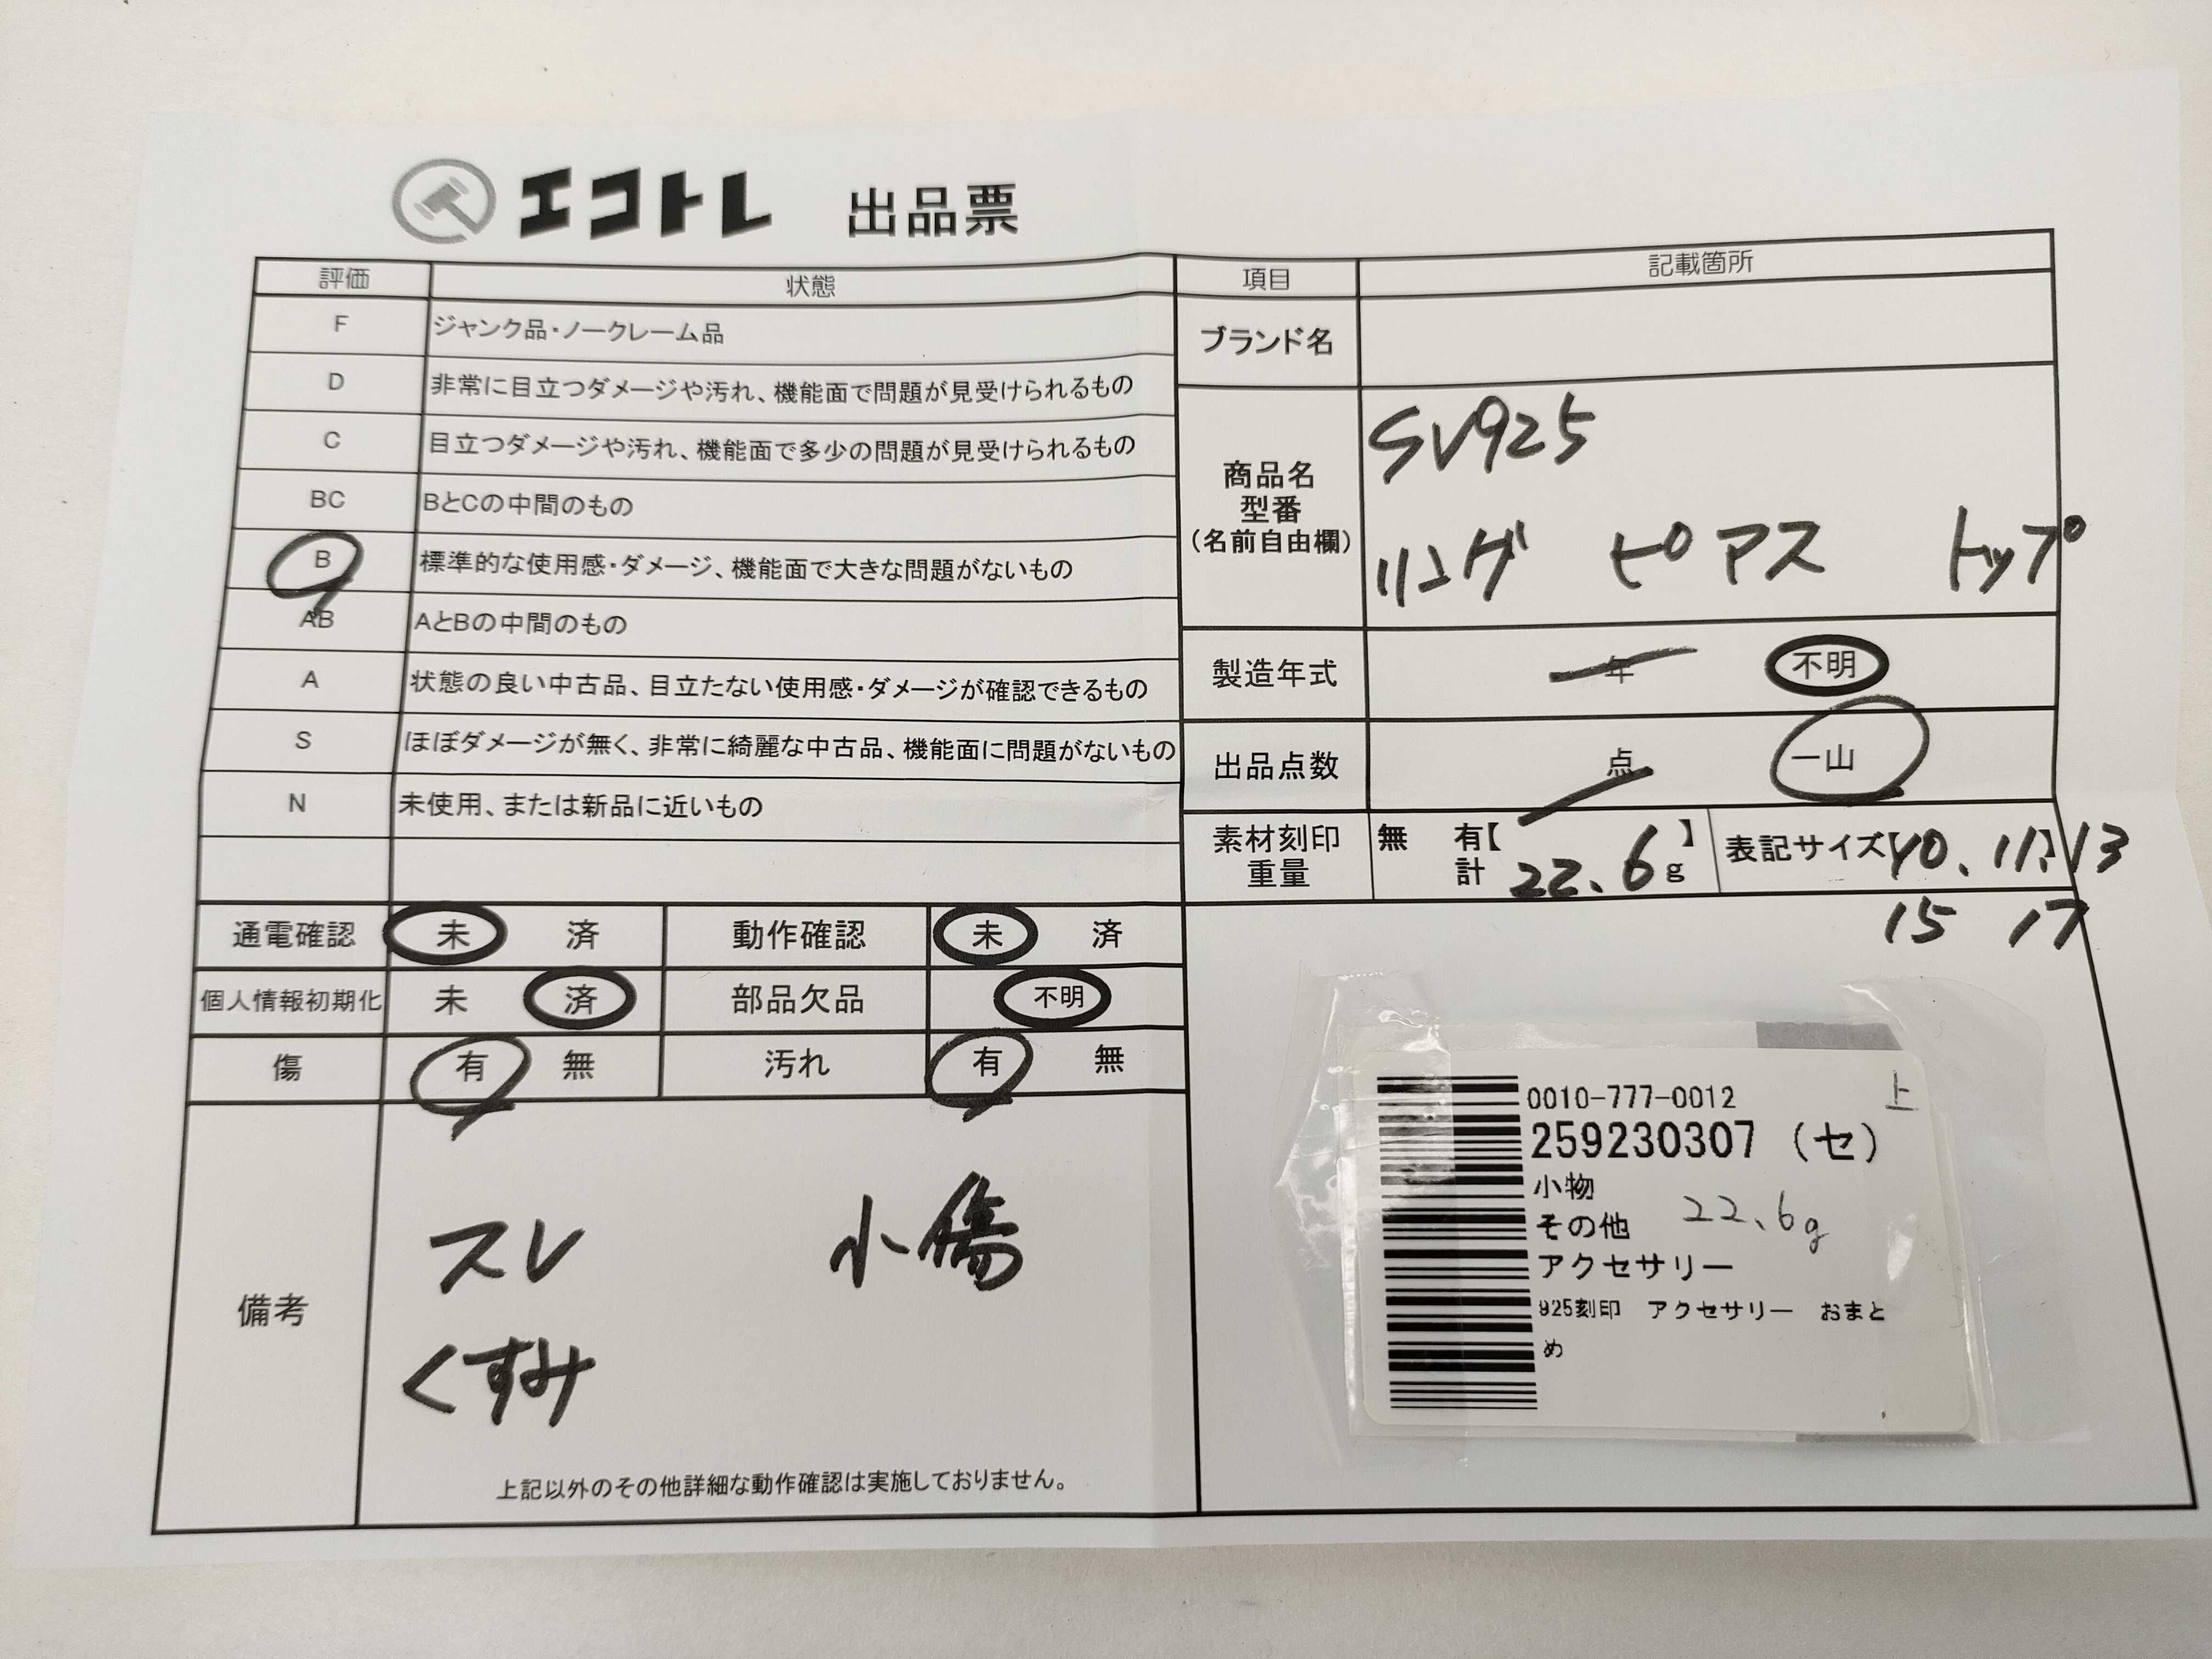 エコトレ 出品票
評価 状態
F ジャンク品・ノークレーム品
D 非常に目立つダメージや汚れ、機能面で問題が見受けられるもの
C 目立つダメージや汚れ、機能面で多少の問題が見受けられるもの
BC BとCの中間のもの
B 標準的な使用感・ダメージ、機能面で大きな問題がないもの
AB AとBの中間のもの
A 状態の良い中古品、目立たない使用感・ダメージが確認できるもの
S ほぼダメージが無く、非常に綺麗な中古品、機能面に問題がないもの
N 未使用、または新品に近いもの
通電確認 未 済 動作確認 未 済
個人情報初期化 未 済 部品欠品 不明
傷 有 無 汚れ 有 無
備考
スレ 小傷
くすみ
上記以外のその他詳細な動作確認は実施しておりません。
項目 記載箇所
ブランド名
商品名
型番
(名前自由欄)
SV925
リング ピアス トップ
製造年式 年 不明
出品点数 点 一山
素材刻印
重量
無 有【 】
計 22.6g
表記サイズ【 10. 11】 13
15 17
0010-777-0012 上
259230307 (セ)
小物
その他 22.6g
アクセサリー
925刻印 アクセサリー おまと
め